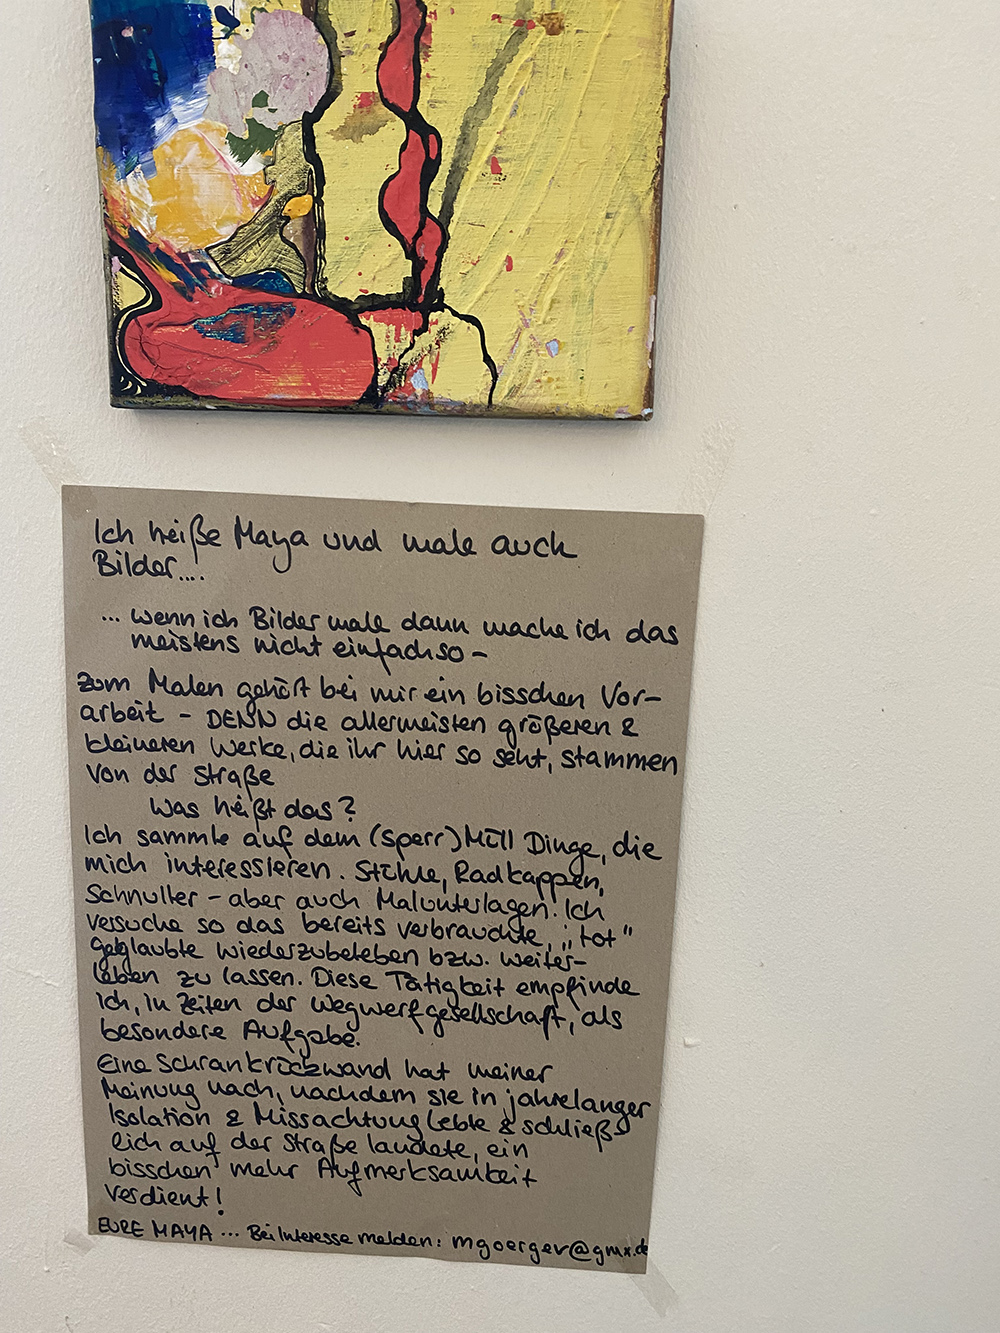 Ich heiße Maya und male auch
Bilder....
... wenn ich Bilder male dann mache ich das
meistens nicht einfach so –
Zum Malen gehört bei mir ein bisschen Vor-
arbeit – DENN die allermeisten größeren &
kleineren Werke, die ihr hier so seht, stammen
von der Straße
Was heißt das?
Ich sammle auf dem (Sperr)Müll Dinge, die
mich interessieren. Stühle, Radkappen,
Schnuller – aber auch Malunterlagen. Ich
versuche so das bereits verbrauchte, „tot"
geglaubte wiederzubeleben bzw. weiter-
leben zu lassen. Diese Tätigkeit empfinde
ich, in Zeiten der Wegwerfgesellschaft, als
besondere Aufgabe.
Eine Schrankrückwand hat meiner
Meinung nach, nachdem sie in jahrelanger
Isolation & Missachtung lebte & schließ-
lich auf der Straße landete, ein
bisschen mehr Aufmerksamkeit
verdient!
EURE MAYA ... Bei Interesse melden: mgoerger@gmx.de